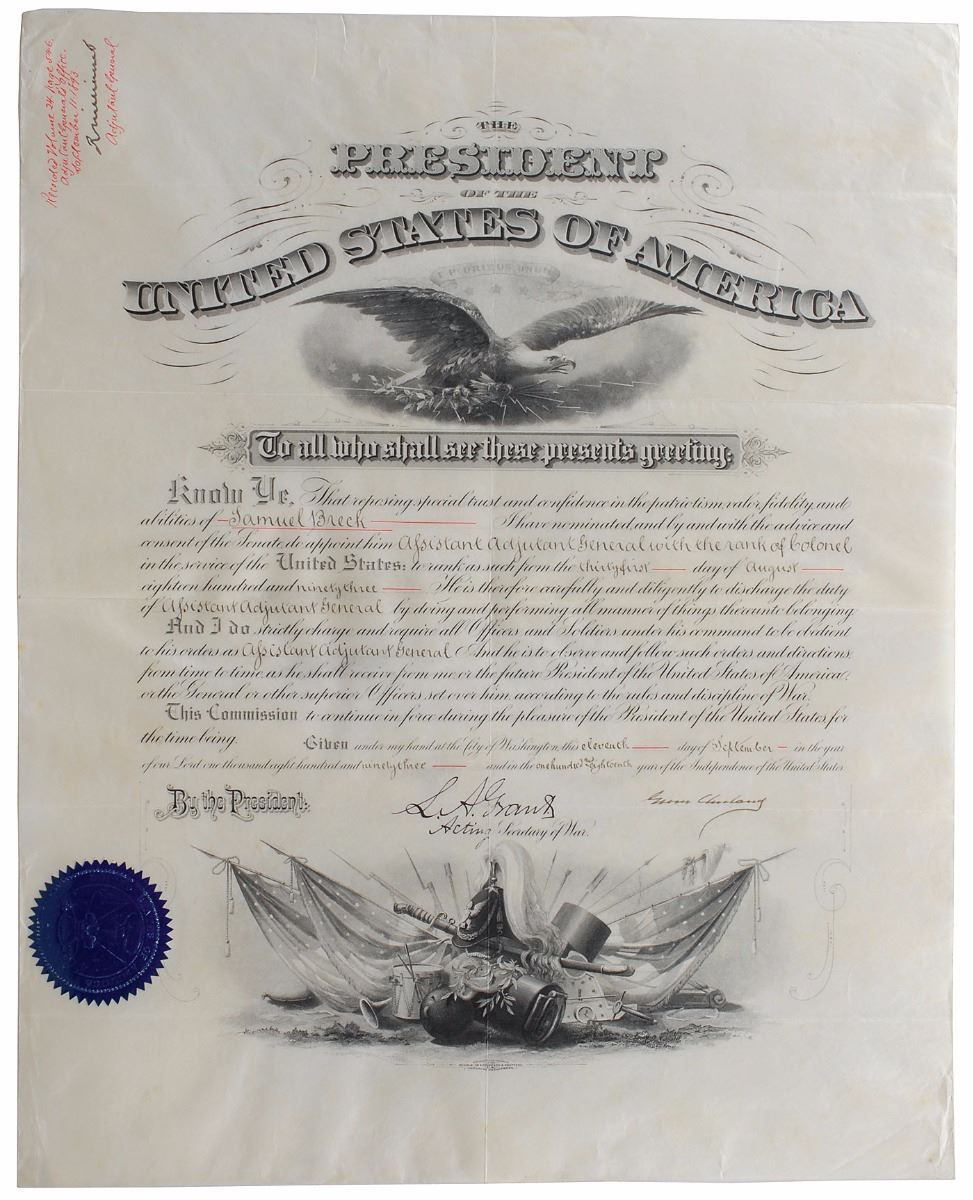 Recorded Volume 24 Page 546,
Adjutant General's Office.
September 11 1893
Adjutant General
THE
PRESIDENT
OF THE
UNITED STATES OF AMERICA
E PLURIBUS UNUM
To all who shall see these presents greeting:
Know Ye, That reposing special trust and confidence in the patriotism, valor, fidelity, and
abilities of Samuel Breck I have nominated, and by and with the advice and
consent of the Senate, do appoint him Assistant Adjutant General with the rank of Colonel
in the service of the United States: to rank as such from the thirty first day of August
eighteen hundred and ninety three He is therefore carefully and diligently to discharge the duty
of Assistant Adjutant General by doing and performing all manner of things thereunto belonging
And I do strictly charge and require all Officers and Soldiers under his command to be obedient
to his orders as Assistant Adjutant General And he is to observe and follow such orders and directions,
from time to time, as he shall receive from me or the future President of the United States of America,
or the General or other superior Officers set over him, according to the rules and discipline of War.
This Commission to continue in force during the pleasure of the President of the United States, for
the time being. Given under my hand at the City of Washington, this eleventh day of September in the year
of our Lord one thousand eight hundred and ninety three and in the one hundred & Eighteenth year of the Independence of the United States
By the President: L. A. Grant Grover Cleveland
Acting Secretary of War.